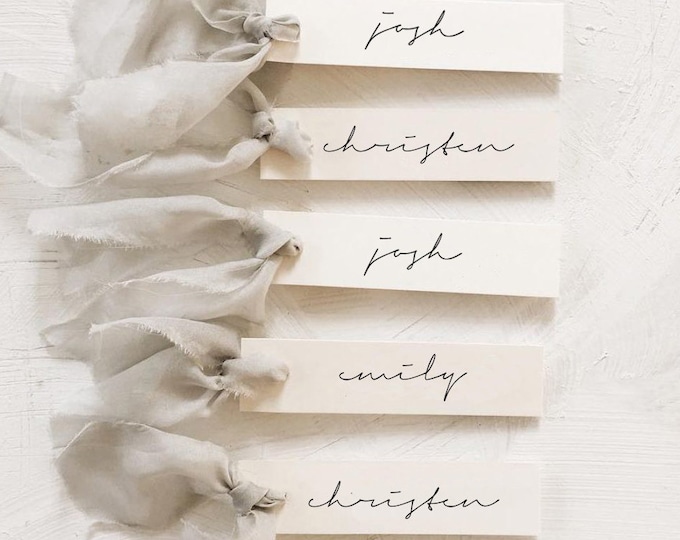 josh
christen
josh
emily
christen